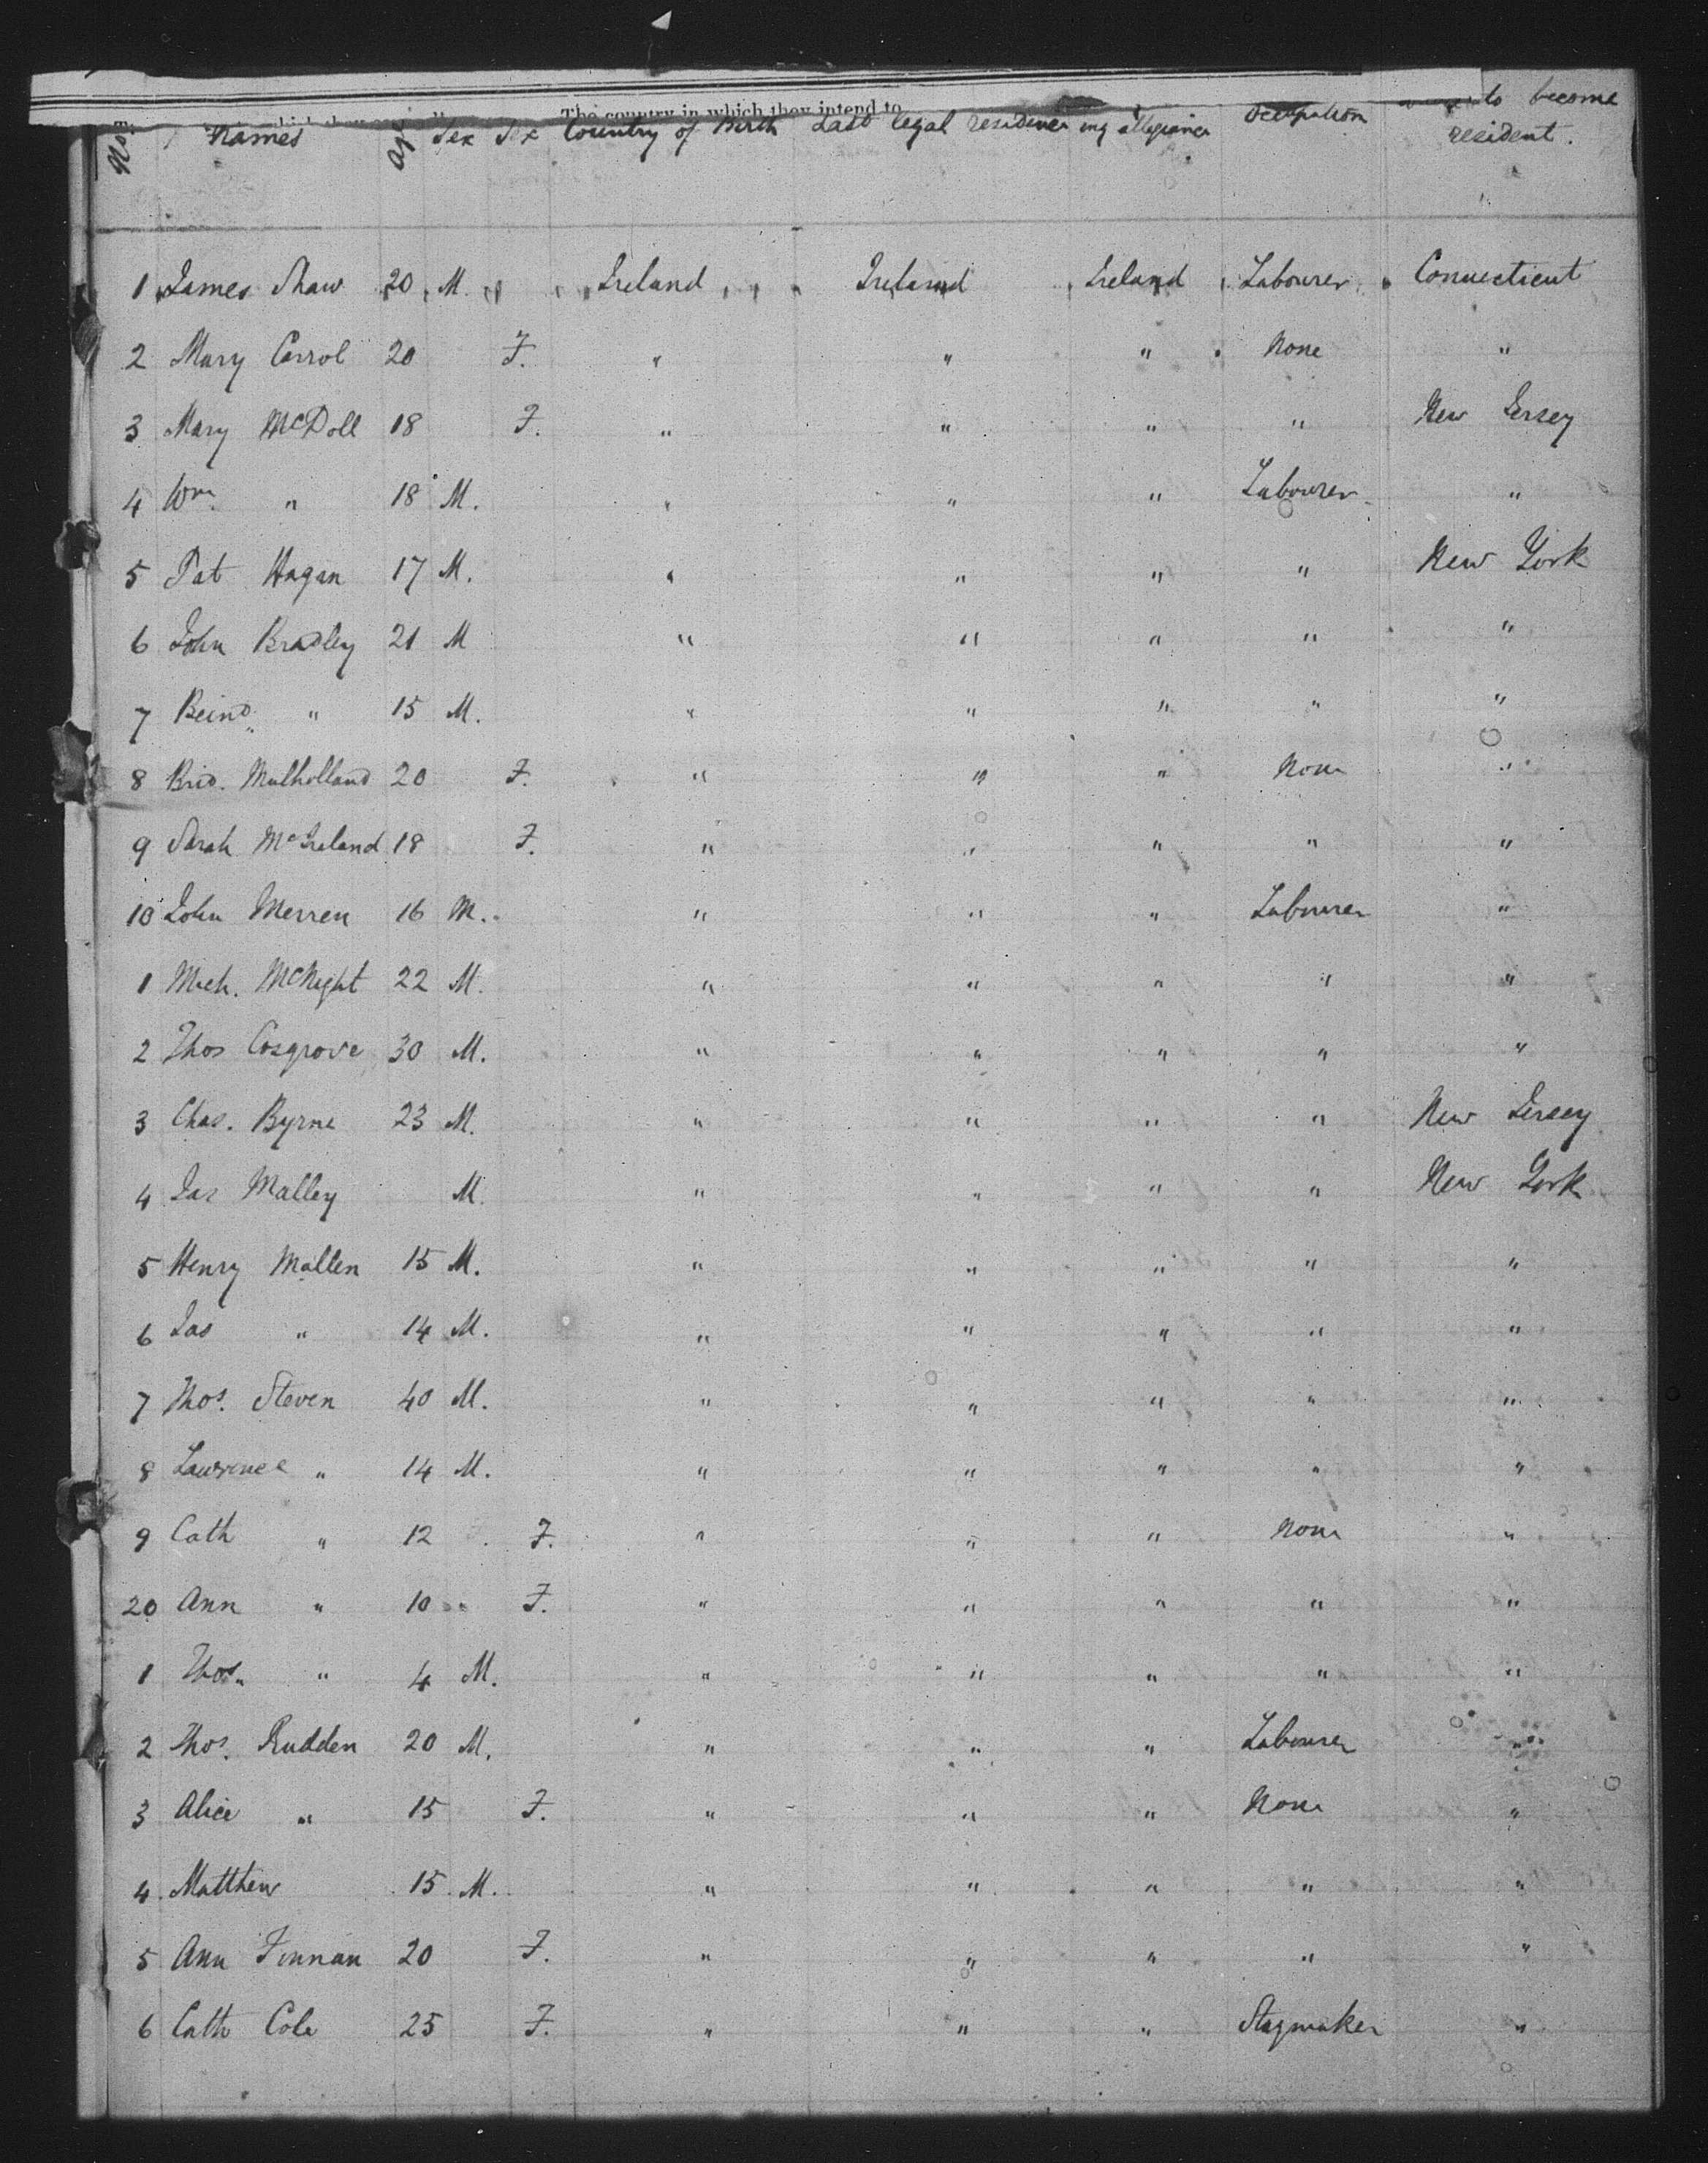 The country in which they intend to
No Names Age Sex Sex Country of Birth Last legal residence ing allegiance Occupation to become
resident.
1 James Shaw 20 M. Ireland Ireland Ireland Labourer Connecticut
2 Mary Carrol 20 F. " " " None "
3 Mary McDoll 18 F. " " " " New Jersey
4 Wm " 18 M. " " " Labourer "
5 Pat Hagan 17 M. " " " " New York
6 John Bradley 21 M " " " " "
7 " 15 M. " " " " "
8 Brid. Mulholland 20 F. " " " None "
9 Sarah McIreland 18 F. " " " " "
10 John Merren 16 M. " " " Labourer "
1 Mich. McNight 22 M. " " " " "
2 Thos Cosgrove 30 M. " " " " "
3 Chas. Byrne 23 M. " " " " New Jersey
4 Jas Malley M. " " " " New York
5 Henry Mallen 15 M. " " " " "
6 Jas " 14 M. " " " " "
7 Thos. Steven 40 M. " " " " "
8 Lawrence " 14 M. " " " " "
9 Cath " 12 F. " " " None "
20 Ann " 10 F. " " " " "
1 Thos. " 4 M. " " " " "
2 Thos. Rudden 20 M. " " " Labourer "
3 Alice " 15 F. " " " None "
4 Matthew 15 M. " " " " "
5 Ann Finnan 20 F. " " " " "
6 Cath Cole 25 F. " " " Staymaker "